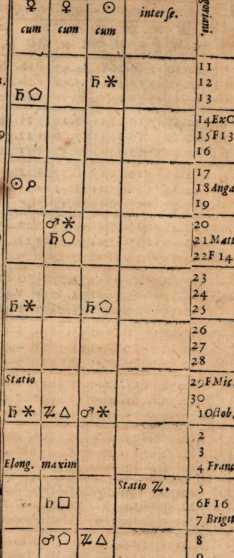 ☿ ♀ ☉ inter se. goriani.
cum cum cum
11
♄ ⚹ 12
♄ ⬠ 13
14 Ex
15 F 13
16
17
☉ ☍ 18 Anga
19
♂ ⚹ 20
♄ ⬠ 21 Matt
22 F 14
23
24
♄ ⚹ ♄ ⬠ 25
26
27
28
Statio 29 F Mic.
30
♄ ⚹ ♃ △ ♂ ⚹ 1 Octob.
2
3
Elong. maxim 4 Franc
Statio ♃. 5
♄ □ 6 F 16
7 Brigit
♂ ⬠ ♃ △ 8